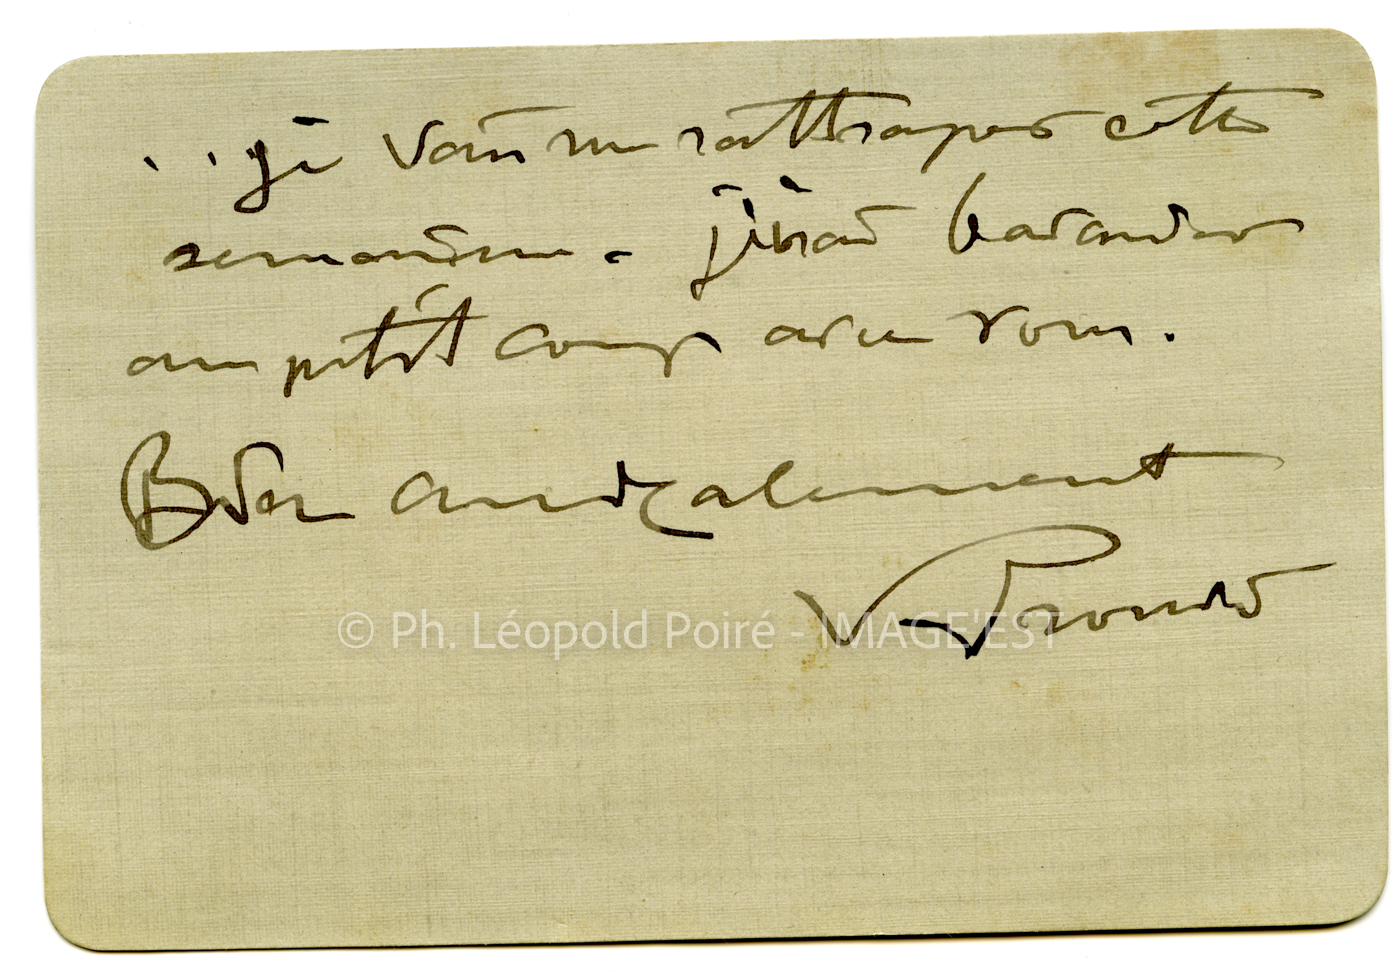 .. je vais me rattraper cette
semaine. j'irai bavarder
un petit coup avec vous.
Bien amicalement
V Prouvé
© Ph. Léopold Poiré - IMAGE'EST